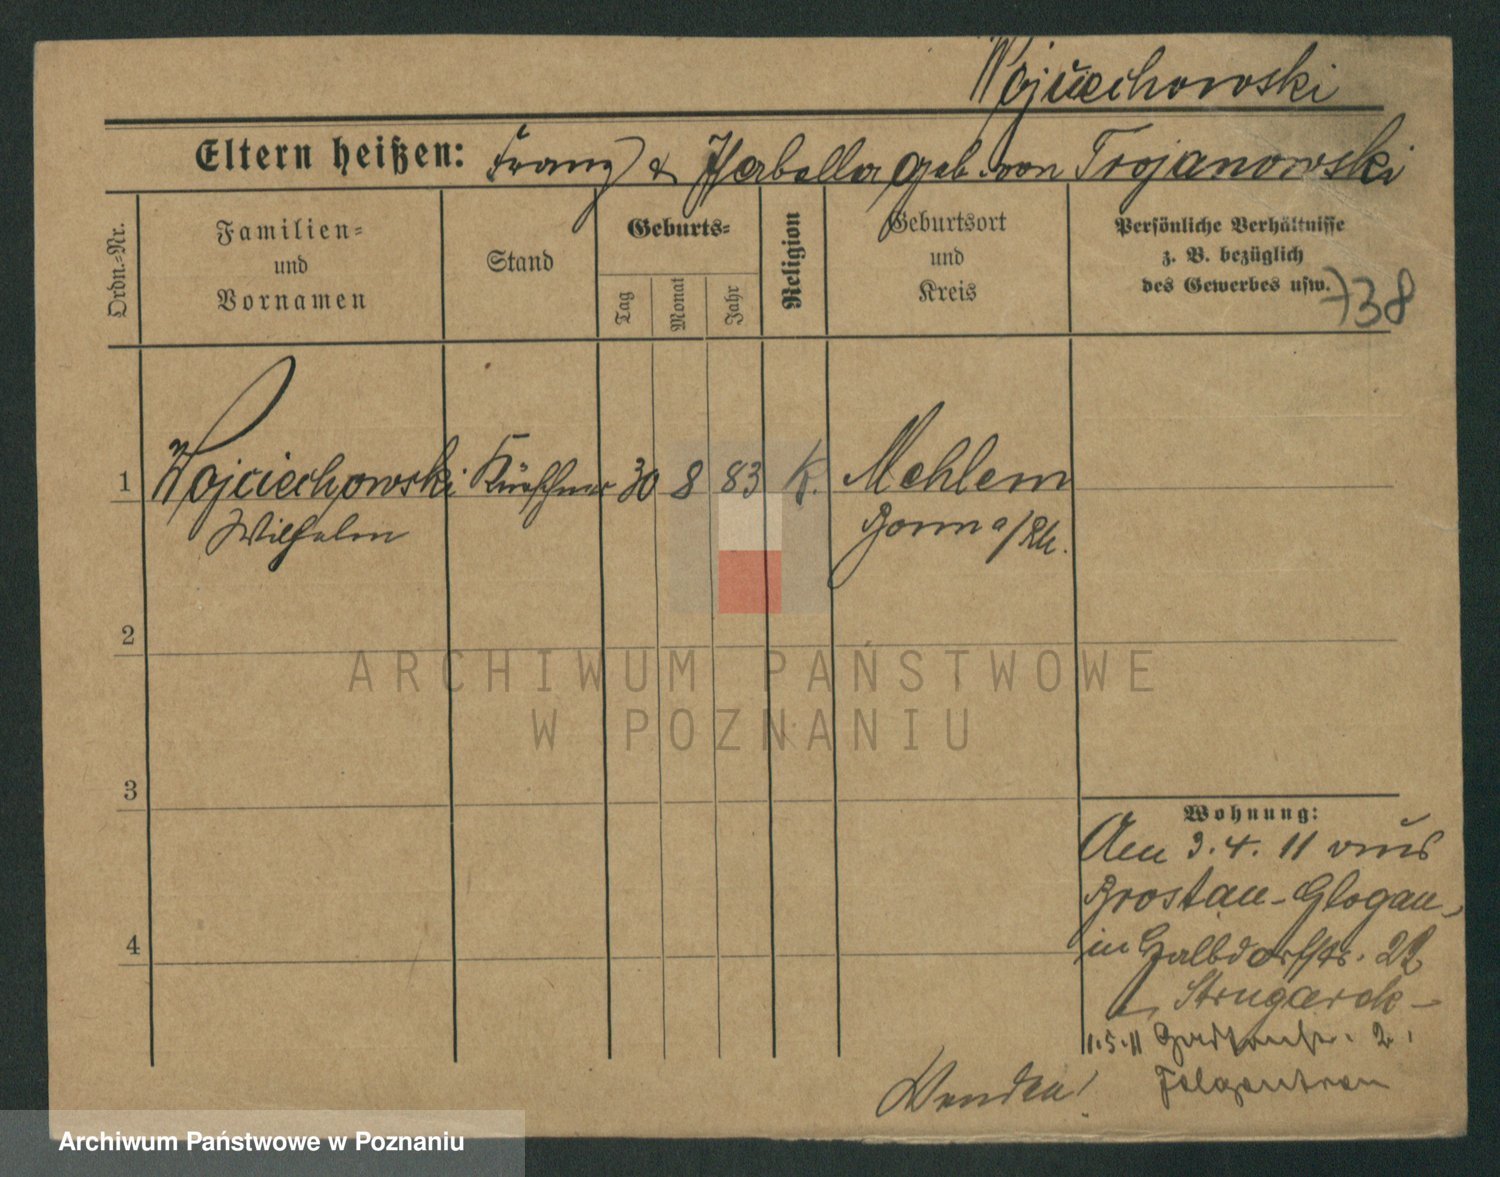 Wojciechowski
Eltern heißen: Franz & Isabella geb. von Trojanowski
Ordn.-Nr.
Familien-
und
Vornamen
Stand
Geburts-
Tag
Monat
Jahr
Religion
Geburtsort
und
Kreis
Persönliche Verhältnisse
z. B. bezüglich
des Gewerbes usw.
738
1 Wojciechowski Kürschner 30 8 83 k. Mehlem
Wilhelm Bonn a/Rh.
2
3
4
Wohnung:
Am 3.4.11 aus
Brostau-Glogau
in Halbdorfstr. 22
Strugarek
1.5.11 2.
Wenden!
ARCHIWUM PAŃSTWOWE
W POZNANIU
Archiwum Państwowe w Poznaniu